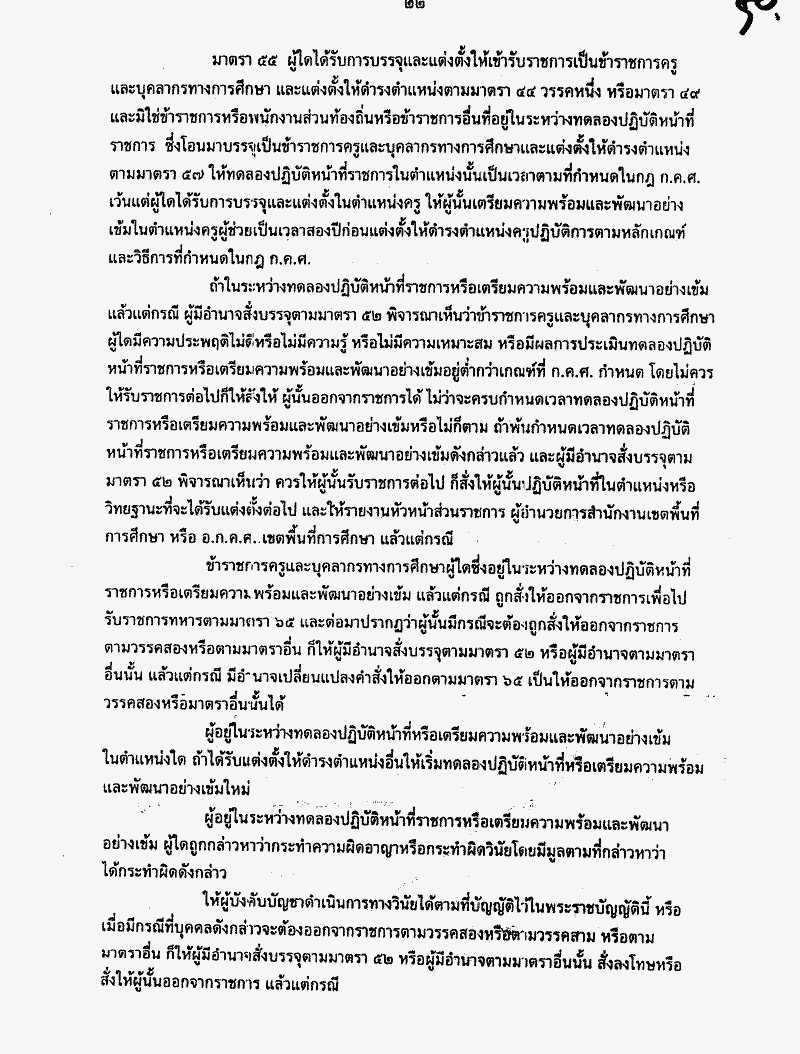 ๒๒
๙๐.
มาตรา ๕๕ ผู้ใดได้รับการบรรจุและแต่งตั้งให้เข้ารับราชการเป็นข้าราชการครู
และบุคลากรทางการศึกษา และแต่งตั้งให้ดำรงตำแหน่งตามมาตรา ๔๔ วรรคหนึ่ง หรือมาตรา ๔๙
และมิใช่ข้าราชการหรือพนักงานส่วนท้องถิ่นหรือข้าราชการอื่นที่อยู่ในระหว่างทดลองปฏิบัติหน้าที่
ราชการ ซึ่งโอนมาบรรจุเป็นข้าราชการครูและบุคลากรทางการศึกษาและแต่งตั้งให้ดำรงตำแหน่ง
ตามมาตรา ๕๗ ให้ทดลองปฏิบัติหน้าที่ราชการในตำแหน่งนั้นเป็นเวลาตามที่กำหนดในกฎ ก.ค.ศ.
เว้นแต่ผู้ใดได้รับการบรรจุและแต่งตั้งในตำแหน่งครู ให้ผู้นั้นเตรียมความพร้อมและพัฒนาอย่าง
เข้มในตำแหน่งครูผู้ช่วยเป็นเวลาสองปีก่อนแต่งตั้งให้ดำรงตำแหน่งครูปฏิบัติการตามหลักเกณฑ์
และวิธีการที่กำหนดในกฎ ก.ค.ศ.
ถ้าในระหว่างทดลองปฏิบัติหน้าที่ราชการหรือเตรียมความพร้อมและพัฒนาอย่างเข้ม
แล้วแต่กรณี ผู้มีอำนาจสั่งบรรจุตามมาตรา ๕๒ พิจารณาเห็นว่าข้าราชการครูและบุคลากรทางการศึกษา
ผู้ใดมีความประพฤติไม่ดีหรือไม่มีความรู้ หรือไม่มีความเหมาะสม หรือมีผลการประเมินทดลองปฏิบัติ
หน้าที่ราชการหรือเตรียมความพร้อมและพัฒนาอย่างเข้มอยู่ต่ำกว่าเกณฑ์ที่ ก.ค.ศ. กำหนด โดยไม่ควร
ให้รับราชการต่อไปก็ให้สั่งให้ ผู้นั้นออกจากราชการได้ ไม่ว่าจะครบกำหนดเวลาทดลองปฏิบัติหน้าที่
ราชการหรือเตรียมความพร้อมและพัฒนาอย่างเข้มหรือไม่ก็ตาม ถ้าพ้นกำหนดเวลาทดลองปฏิบัติ
หน้าที่ราชการหรือเตรียมความพร้อมและพัฒนาอย่างเข้มดังกล่าวแล้ว และผู้มีอำนาจสั่งบรรจุตาม
มาตรา ๕๒ พิจารณาเห็นว่า ควรให้ผู้นั้นรับราชการต่อไป ก็สั่งให้ผู้นั้นปฏิบัติหน้าที่ในตำแหน่งหรือ
วิทยฐานะที่จะได้รับแต่งตั้งต่อไป และให้รายงานหัวหน้าส่วนราชการ ผู้อำนวยการสำนักงานเขตพื้นที่
การศึกษา หรือ อ.ก.ค.ศ. เขตพื้นที่การศึกษา แล้วแต่กรณี
ข้าราชการครูและบุคลากรทางการศึกษาผู้ใดซึ่งอยู่ในระหว่างทดลองปฏิบัติหน้าที่
ราชการหรือเตรียมความพร้อมและพัฒนาอย่างเข้ม แล้วแต่กรณี ถูกสั่งให้ออกจากราชการเพื่อไป
รับราชการทหารตามมาตรา ๖๕ และต่อมาปรากฏว่าผู้นั้นมีกรณีจะต้องถูกสั่งให้ออกจากราชการ
ตามวรรคสองหรือตามมาตราอื่น ก็ให้ผู้มีอำนาจสั่งบรรจุตามมาตรา ๕๒ หรือผู้มีอำนาจตามมาตรา
อื่นนั้น แล้วแต่กรณี มีอำนาจเปลี่ยนแปลงคำสั่งให้ออกตามมาตรา ๖๕ เป็นให้ออกจากราชการตาม
วรรคสองหรือมาตราอื่นนั้นได้
ผู้อยู่ในระหว่างทดลองปฏิบัติหน้าที่หรือเตรียมความพร้อมและพัฒนาอย่างเข้ม
ในตำแหน่งใด ถ้าได้รับแต่งตั้งให้ดำรงตำแหน่งอื่นให้เริ่มทดลองปฏิบัติหน้าที่หรือเตรียมความพร้อม
และพัฒนาอย่างเข้มใหม่
ผู้อยู่ในระหว่างทดลองปฏิบัติหน้าที่ราชการหรือเตรียมความพร้อมและพัฒนา
อย่างเข้ม ผู้ใดถูกกล่าวหาว่ากระทำความผิดอาญาหรือกระทำผิดวินัยโดยมีมูลตามที่กล่าวหาว่า
ได้กระทำผิดดังกล่าว
ให้ผู้บังคับบัญชาดำเนินการทางวินัยได้ตามที่บัญญัติไว้ในพระราชบัญญัตินี้ หรือ
เมื่อมีกรณีที่บุคคลดังกล่าวจะต้องออกจากราชการตามวรรคสองหรือตามวรรคสาม หรือตาม
มาตราอื่น ก็ให้ผู้มีอำนาจสั่งบรรจุตามมาตรา ๕๒ หรือผู้มีอำนาจตามมาตราอื่นนั้น สั่งลงโทษหรือ
สั่งให้ผู้นั้นออกจากราชการ แล้วแต่กรณี